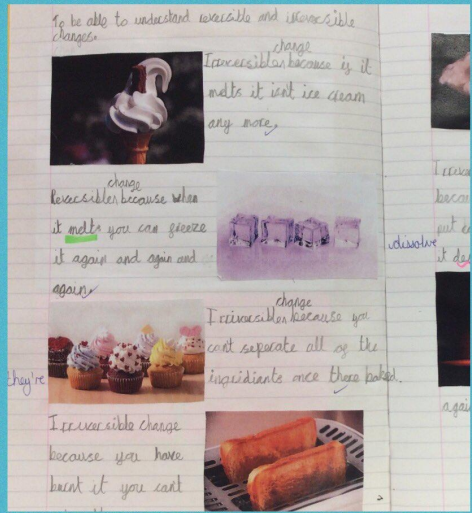 To be able to understand reversible and irreversible
changes.
change
Irreversible because if it
melts it isnt ice cream
any more,
change
Reversible because when
it melts you can freeze
it again and again and
again,
change
Irriversible because you
cant seperate all of the
ingrediants once there baked.
they're
Irreversible change
because you have
burnt it you cant
dissolve
becau
put
it
agai